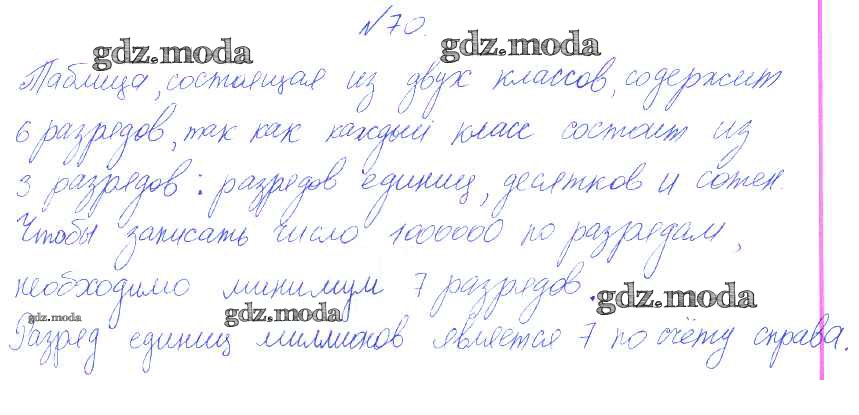 №70.
gdz.moda gdz.moda
Таблица, состоящая из двух классов, содержит
6 разрядов, так как каждый класс состоит из
3 разрядов: разрядов единиц, десятков и сотен.
Чтобы записать число 1000000 по разрядам,
необходимо минимум 7 разрядов.
gdz.moda gdz.moda gdz.moda
Разряд единиц миллионов является 7 по счёту справа.